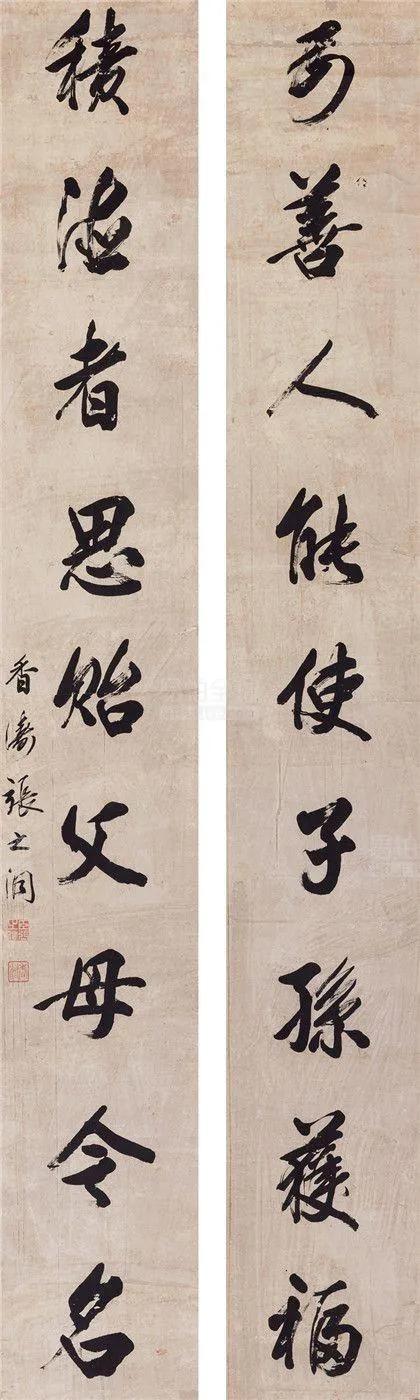 為善人能使子孫獲福
積德者思貽父母令名
香濤張之洞